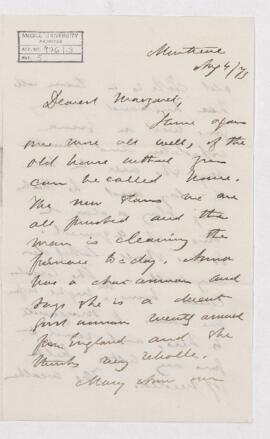 McGILL UNIVERSITY
ARCHIVES
ACC. NO. 976/3
REF. 5
Montreal
Aug 4/73
Dearest Margaret,
Home again
once more all well, if the
old house without you
can be called home.
The new stairs are
all finished and the
man is cleaning the
furnace to-day. Anna
has a charwoman and
says she is a decent
sort woman recently arrived
from England and she
thinks very reliable.
Mary Ann our